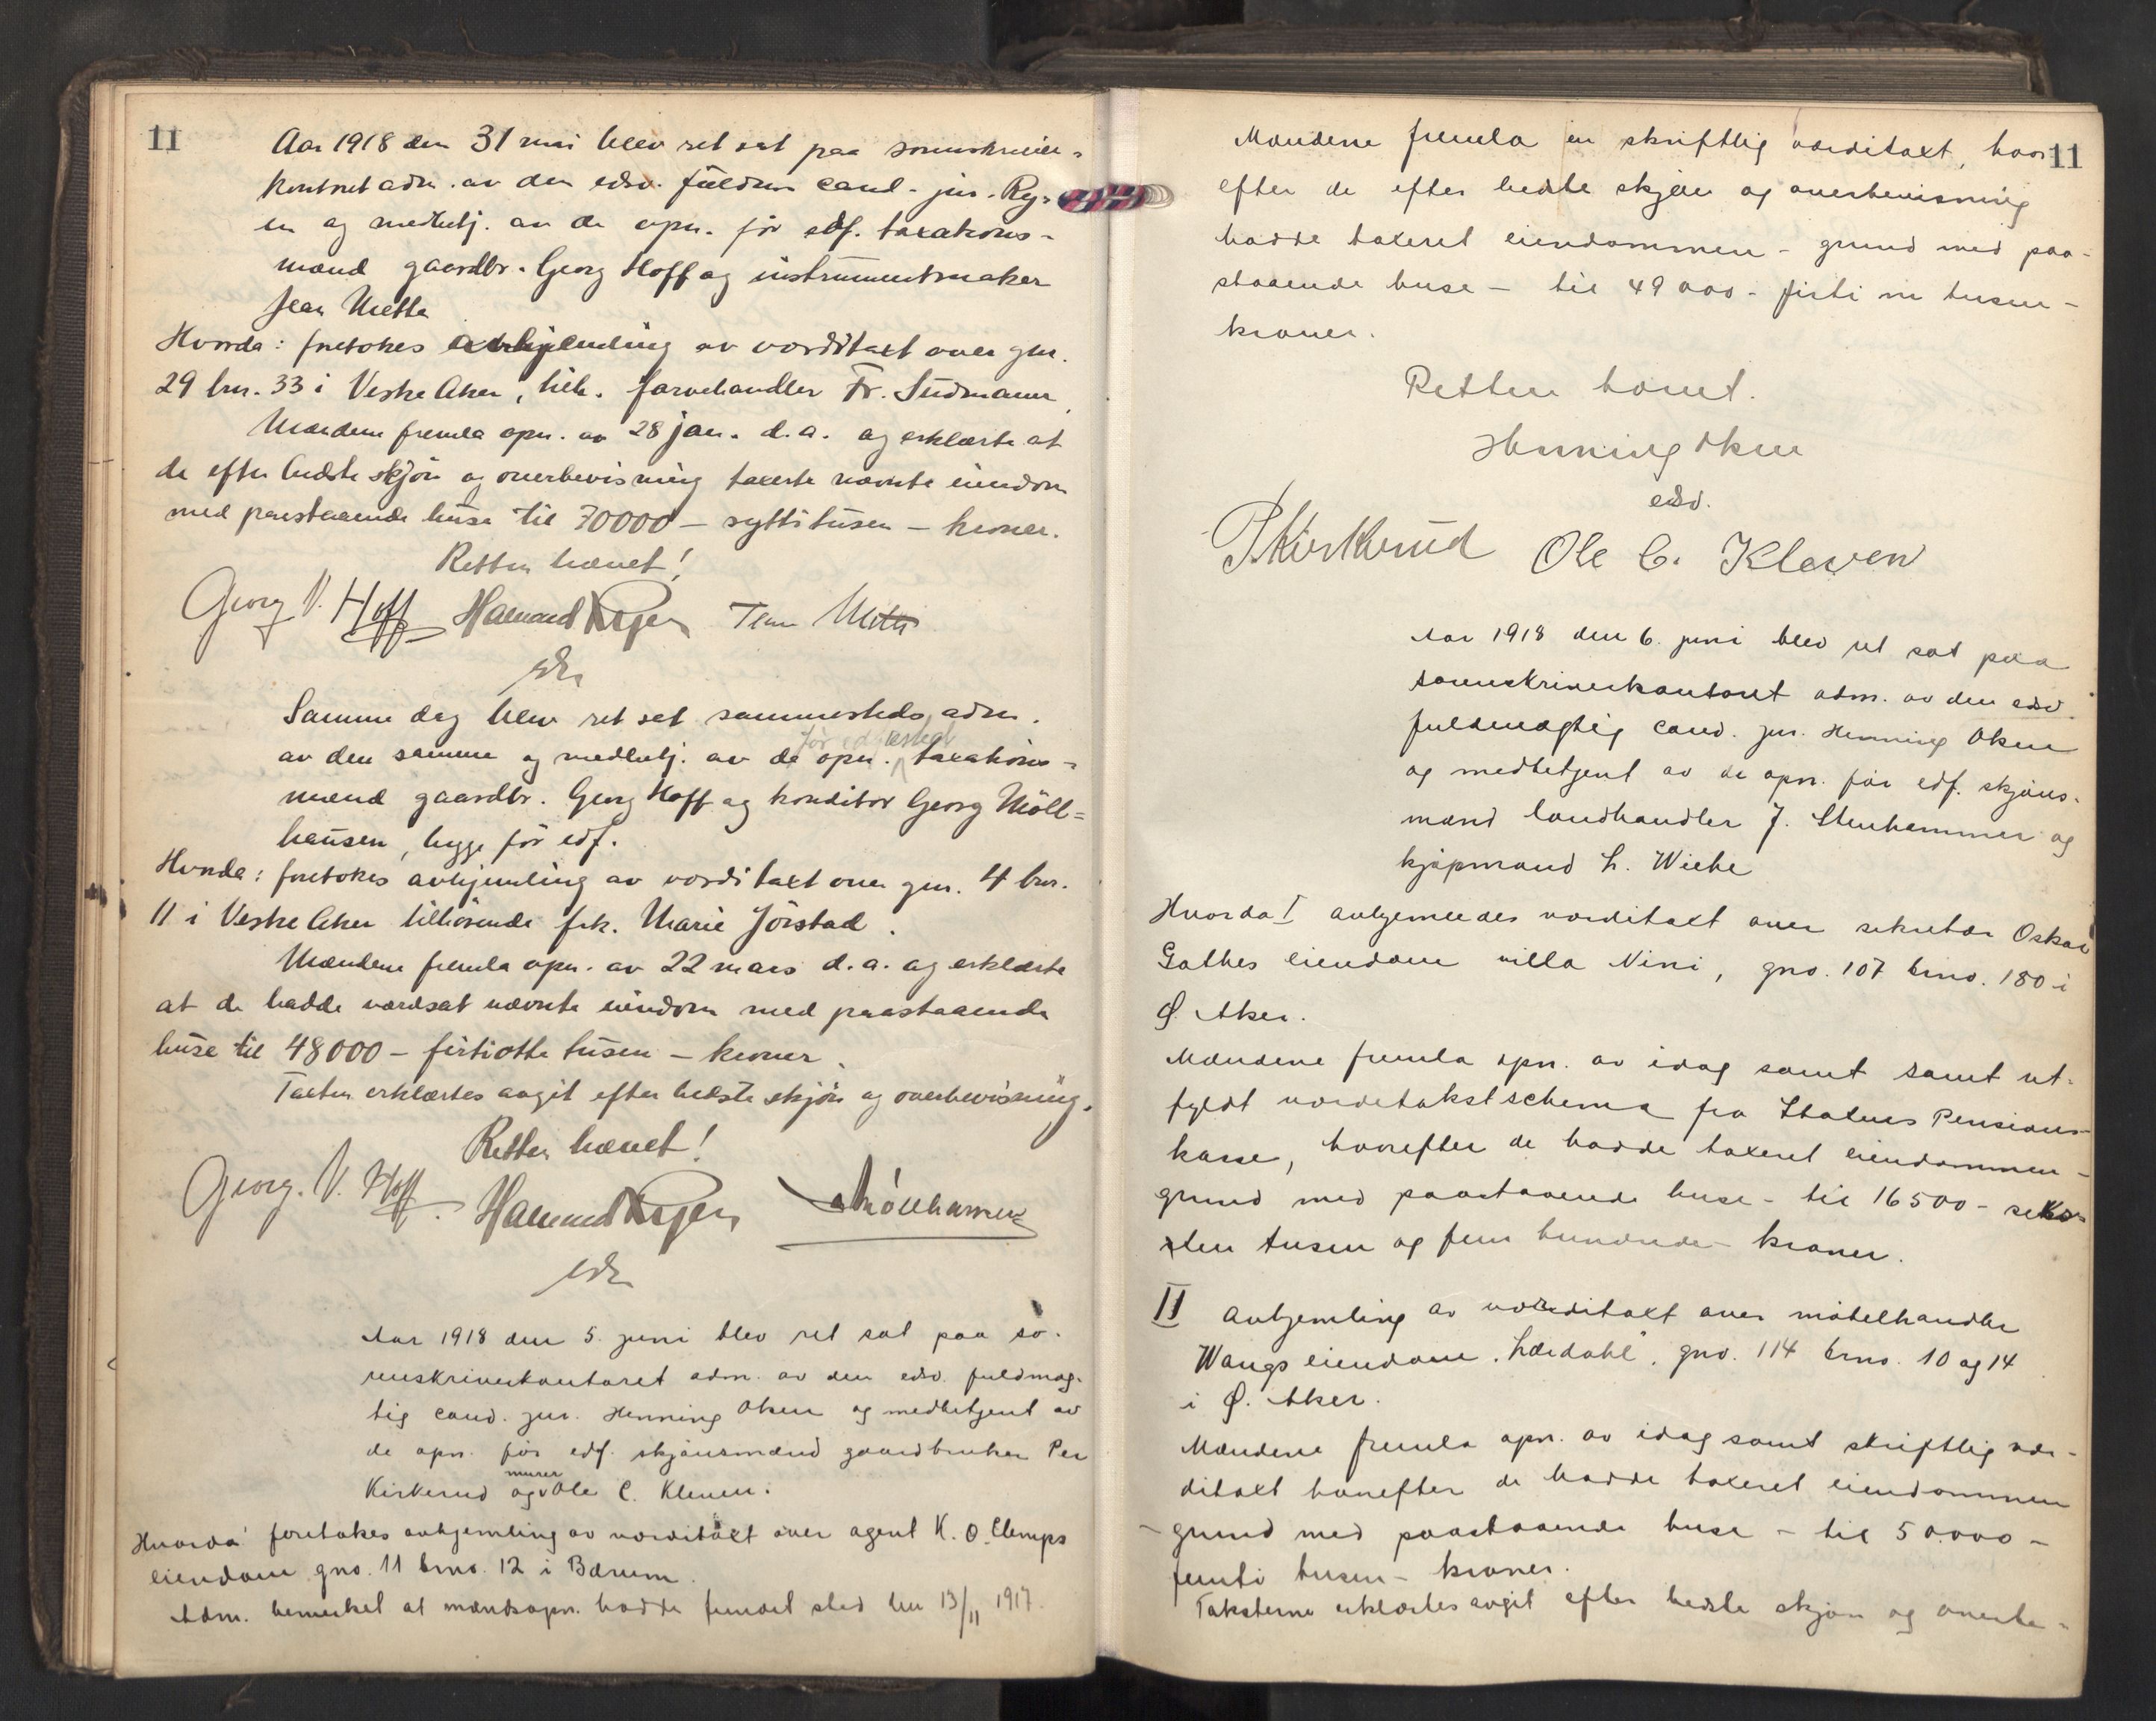 11
Aar 1918 den 31 mai blev ret sat paa sorenskriver-
kontoret adm. av den edsv. fuldm. cand. jur. Ry-
en og medbetj. av de opn. før edf. taxations-
mænd gaardbr. Georg Hoff og instrumentmaker
Jean Mette
Hvorda: foretokes avhjemling av værditaxt over gnr.
29 brn. 33 i Vestre Aker, tilh. farvehandler Fr. Sudmann.
Mændene fremla opn. av 28 jan. d.a. og erklærte at
de efter bedste skjøn og overbevisning taxerte nævnte eiendom
med paastaaende huse til 70000 – sytti tusen – kroner.
Retten hævet!
Georg V. Hoff Halvard Ryen Jean Mette
edsv
Samme dag blev ret sat sammesteds, adm.
av den samme og medbetj. av de opn. før edfæstet taxations-
mænd gaardbr. Georg Hoff og konditor Georg Möll-
hausen, begge før edf.
Hvorda: foretokes avhjemling av værditaxt over gnr. 4 brn.
11 i Vestre Aker tilhørende frk. Marie Jörstad.
Mændene fremla opn. av 22 mars d.a. og erklærte
at de hadde værdsat nævnte eiendom med paastaaende
huse til 48000 – førtiotte tusen – kroner.
Taxten erklærtes avgit efter bedste skjøn og overbevisning.
Retten hævet!
Georg. V. Hoff. Halvard Ryen Möllhausen
edsv
Aar 1918 den 5. juni blev ret sat paa so-
renskriverkontoret adm. av den edsv. fuldmæg-
tig cand. jur. Henning Oken og medbetjent av
de opn. før edf. skjønsmænd gaardbruker Per
Kirkerud og murer Ole C. Kleven.
Hvorda foretokes avhjemling av værditaxt over agent K. O. Clemps
eiendom gno. 11 brno. 12 i Bærum.
Adm. bemerket at mændsopn. hadde fundet sted den 13/11 1917.
11
Mændene fremla en skriftlig værditaxt, hvor-
efter de efter bedste skjøn og overbevisning
hadde taxeret eiendommen – grund med paa-
staaende huse – til 49000 – førti ni tusen –
kroner.
Retten hævet.
Henning Oken
edsv.
P Kirkerud Ole C. Kleven
Aar 1918 den 6. juni blev ret sat paa
sorenskriverkontoret adm. av den edsv.
fuldmægtig cand. jur. Henning Oken
og medbetjent av de opn. før edf. skjøns-
mænd landhandler J. Stenhammer og
kjøpmand L. Wiebe
Hvorda I avhjemledes værditaxt over sekretær Oskar
Gathes eiendom villa Nini, gno. 107 brno. 180 i
Ø. Aker.
Mændene fremla opn. av idag samt samt ut-
fyldt værdetakstschema fra Statens Pensions-
kasse, hvorefter de hadde taxeret eiendommen –
grund med paastaaende huse – til 16500 – seks-
ten tusen og fem hundrede – kroner.
II Avhjemling av værditaxt over møbelhandler
Wangs eiendom „Lærdahl“, gno. 114 brno. 10 og 14
i Ø. Aker.
Mændene fremla opn. av idag samt skriftlig vær-
ditaxt hvorefter de hadde taxeret eiendommen
– grund med paastaaende huse – til 50.000 –
femti tusen – kroner.
Taksterne erklærtes avgit efter bedste skjøn og overbe-